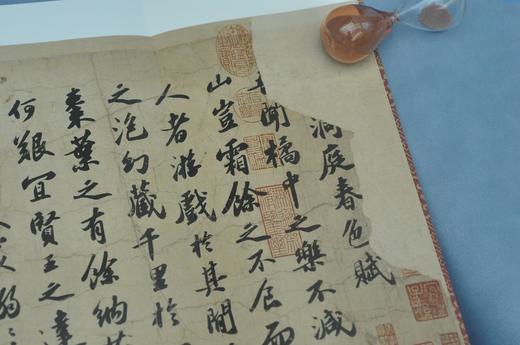 洞庭春色賦
聞橘中之樂不減
山豈霜餘之不食而
人者游戲於其間
之泡幻藏千里於
棗葉之有餘納
何艱宜賢王之達